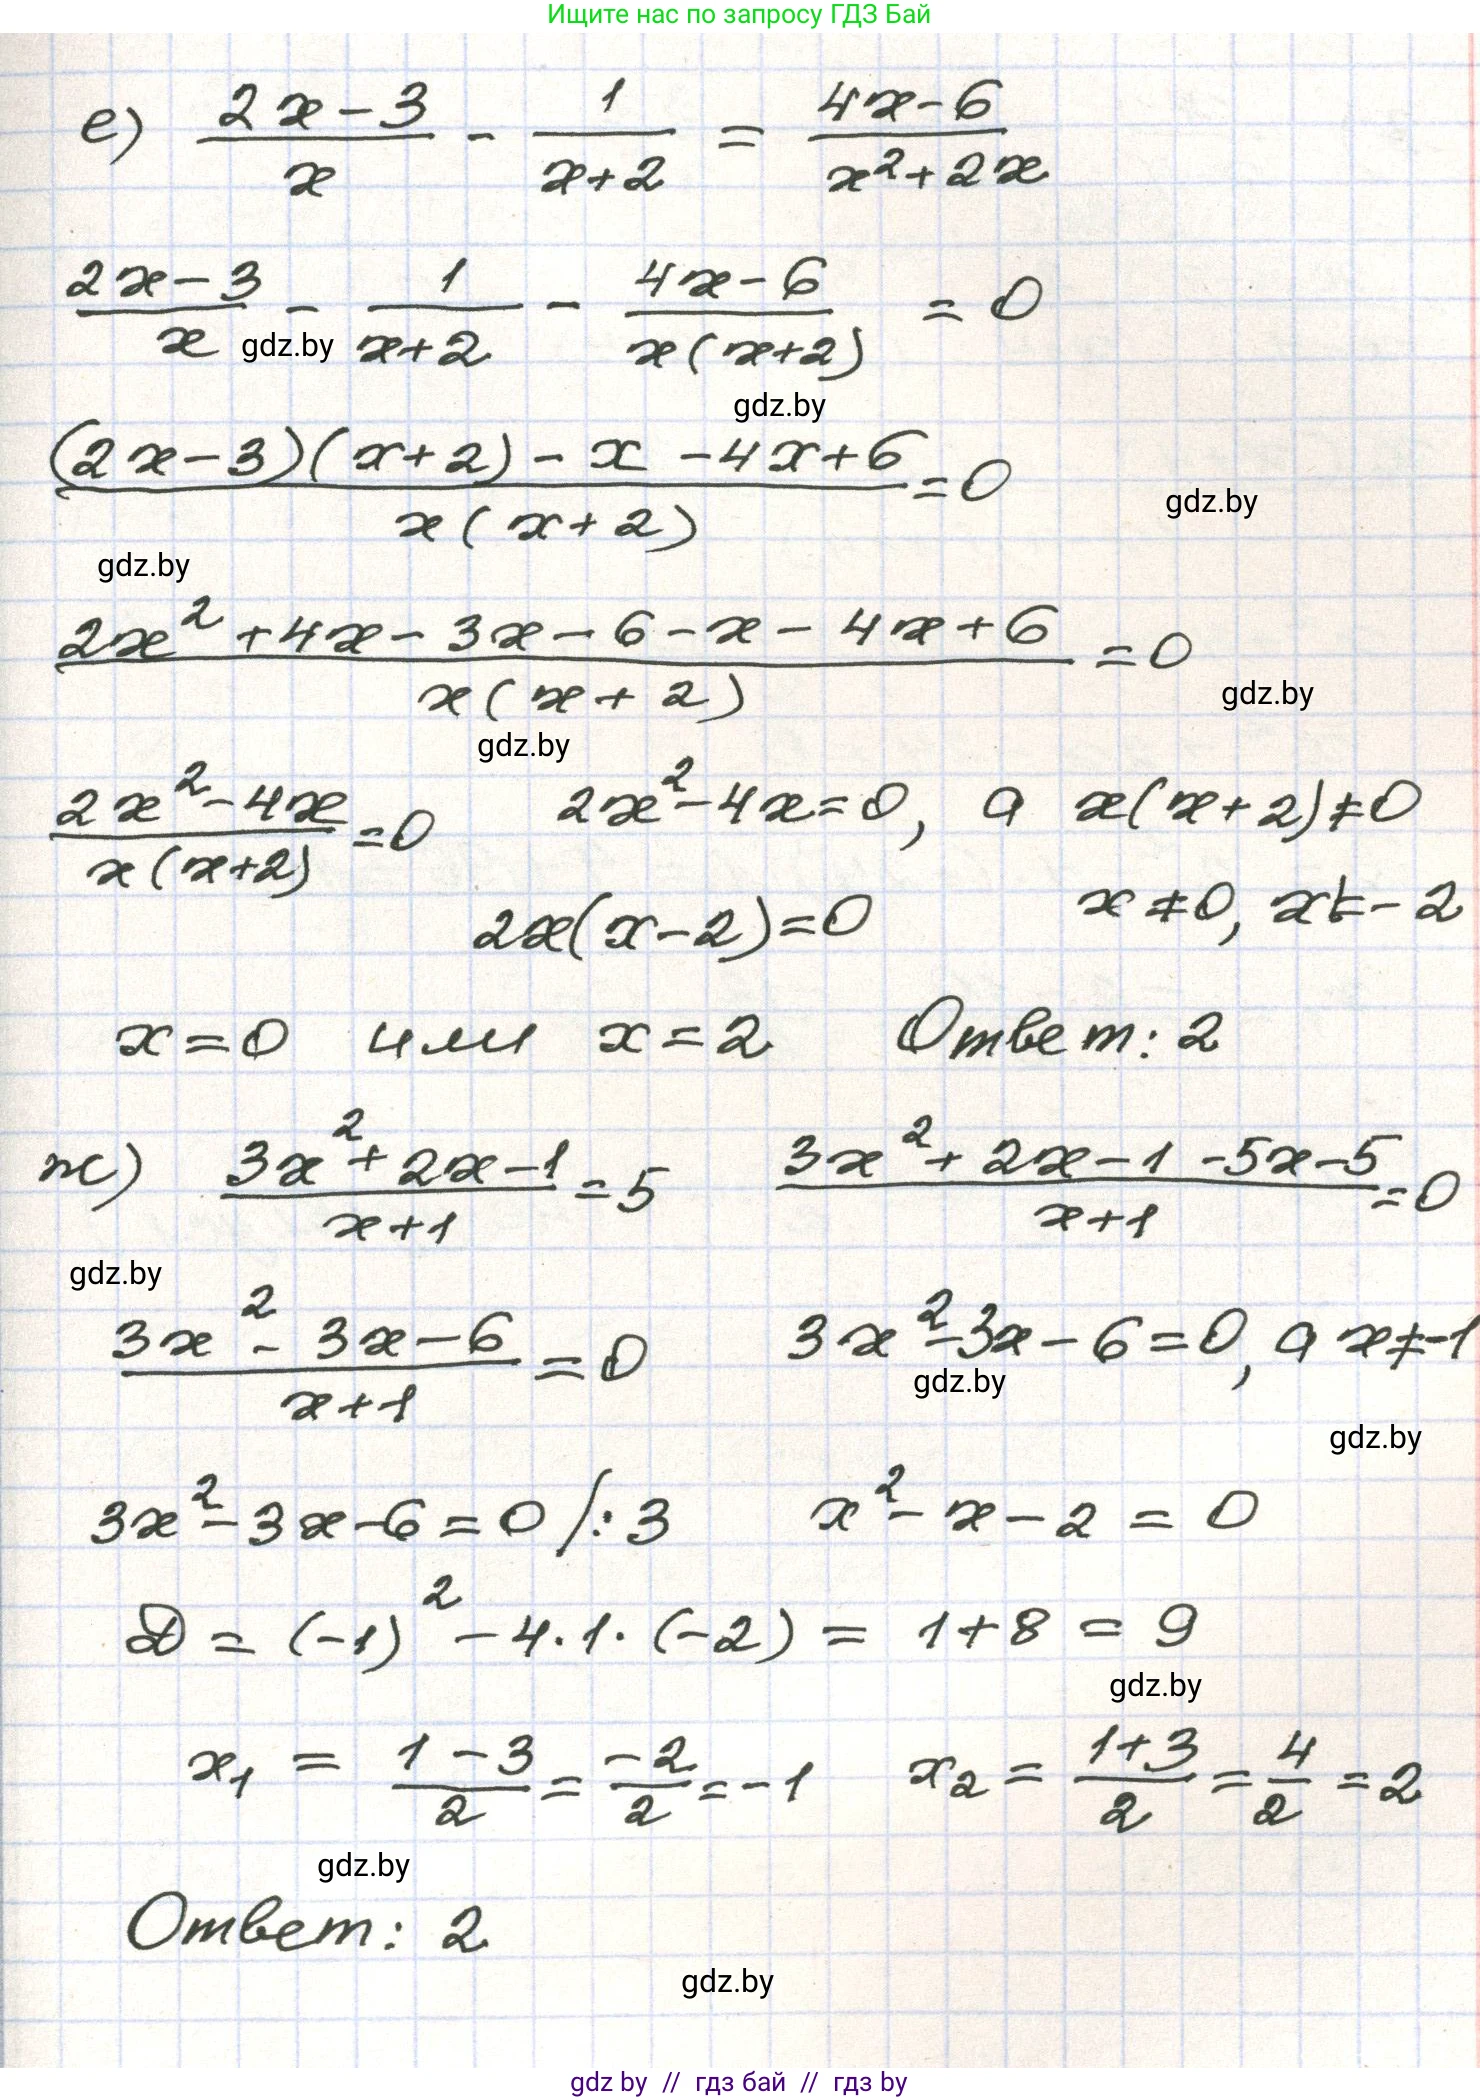 Ищите нас по запросу ГДЗ Бай
е) (2x-3)/x - 1/(x+2) = (4x-6)/(x²+2x)
(2x-3)/x - 1/(x+2) - (4x-6)/(x(x+2)) = 0
gdz.by
gdz.by
((2x-3)(x+2)-x-4x+6)/(x(x+2)) = 0
gdz.by
gdz.by
(2x²+4x-3x-6-x-4x+6)/(x(x+2)) = 0
gdz.by
gdz.by
(2x²-4x)/(x(x+2)) = 0 2x²-4x=0, а x(x+2)≠0
2x(x-2)=0 x≠0, x≠-2
x=0 или x=2 Ответ: 2
ж) (3x²+2x-1)/(x+1) = 5 (3x²+2x-1-5x-5)/(x+1) = 0
gdz.by
(3x²-3x-6)/(x+1) = 0 3x²-3x-6=0, а x≠-1
gdz.by
gdz.by
3x²-3x-6=0 /:3 x²-x-2=0
D = (-1)² -4·1·(-2) = 1+8 = 9
gdz.by
x₁ = (1-3)/2 = -2/2 = -1 x₂ = (1+3)/2 = 4/2 = 2
gdz.by
Ответ: 2
gdz.by
gdz by // гдз бай // гдз by